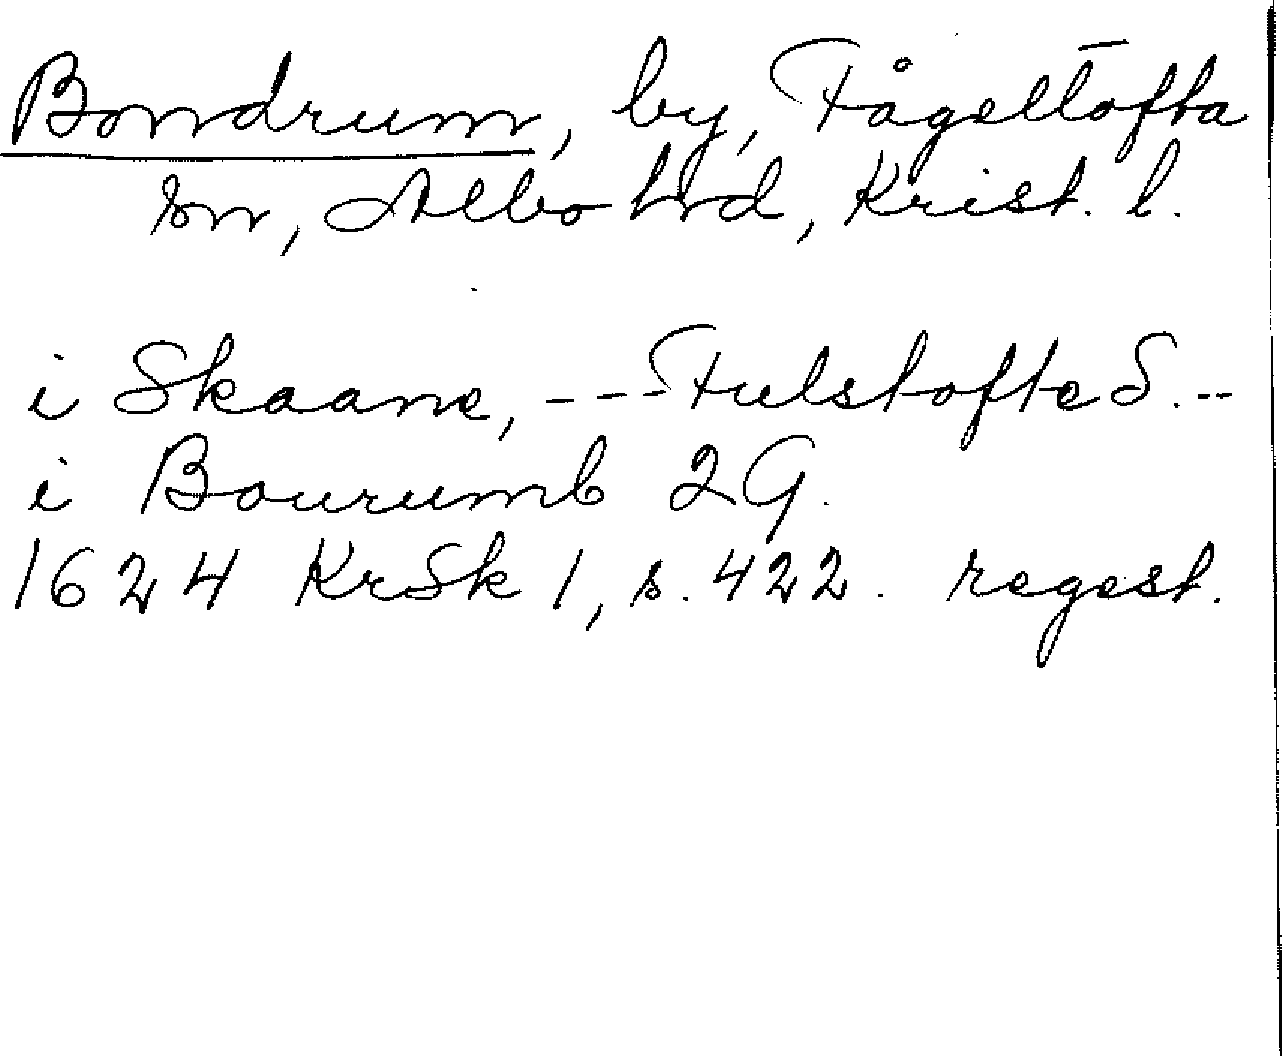 Bondrum, by, Fågeltofta
sn, Albo hrd, Krist. l.
i Skaane, --- Fulstofte S. --
i Bourumb 2 G.
1624 KrSk 1, s. 422. regest.